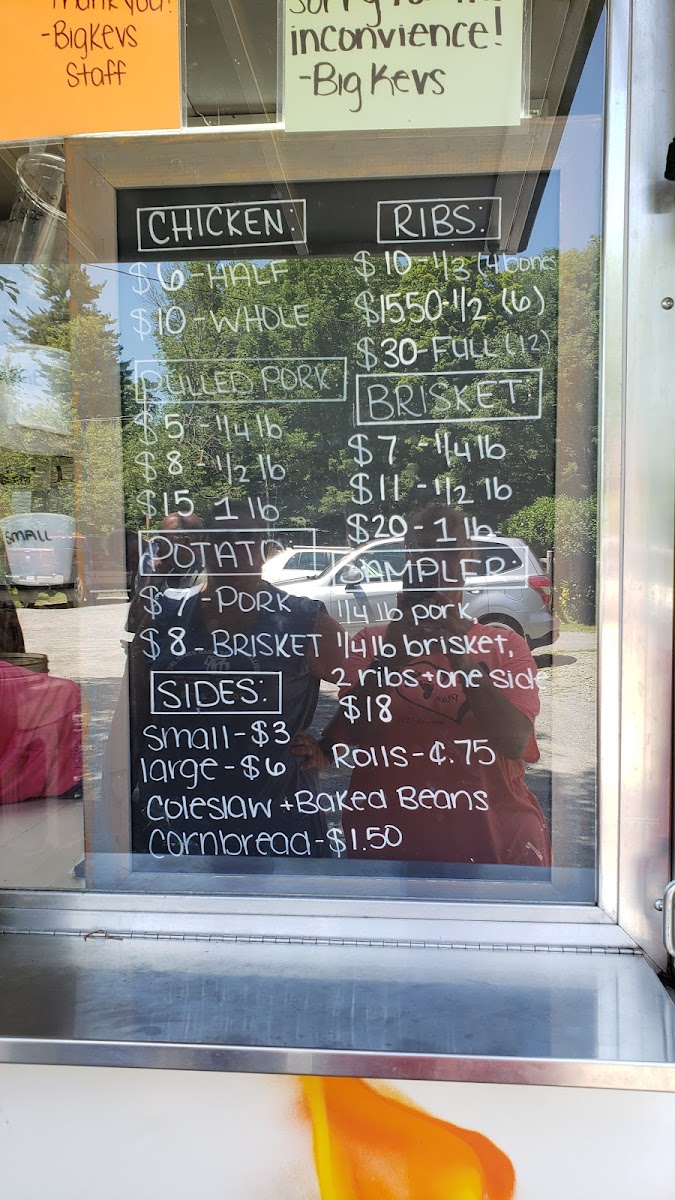 Thank you!
-BigKevs
Staff
Sorry for the
inconvience!
-Big Kevs
CHICKEN:
$6-HALF
$10-WHOLE
PULLED PORK:
$5-1/4 lb
$8-1/2 lb
$15 1 lb
POTATO:
$7-PORK
$8-BRISKET
SIDES:
small-$3
large-$6
RIBS:
$10-1/3 (4 bones
$1550-1/2 (6)
$30-FULL (12)
BRISKET:
$7-1/4 lb
$11-1/2 lb
$20-1 lb
SAMPLER
1/4 lb pork,
1/4 lb brisket,
2 ribs + one side
$18
Rolls-¢.75
Coleslaw + Baked Beans
Cornbread-$1.50
SMALL